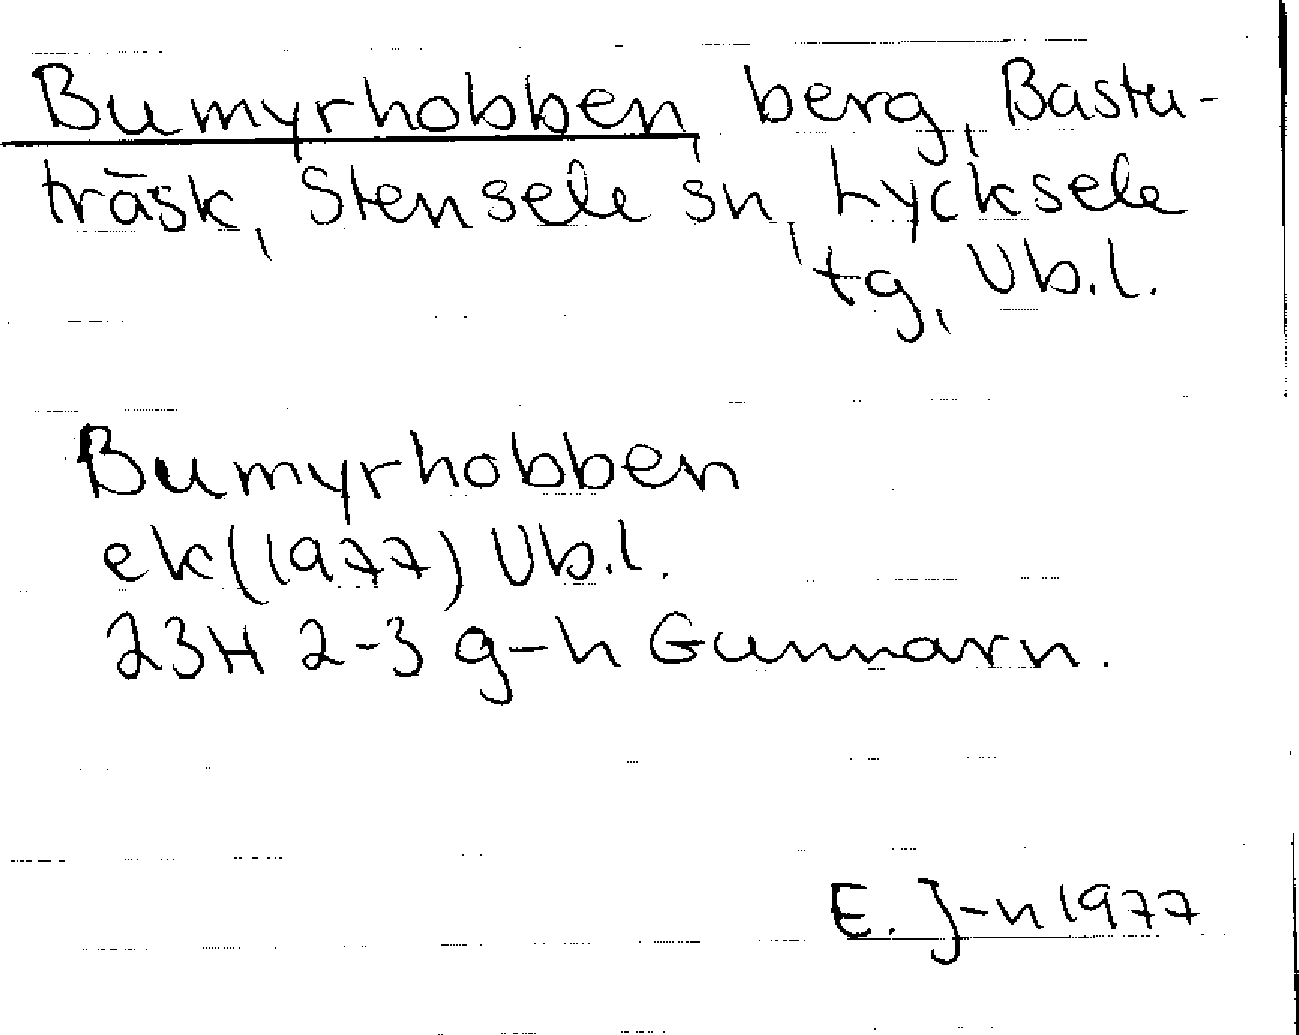 Bumyrhobben berg, Bastu-
träsk, Stensele sn, Lycksele
tg, Vb.l.
Bumyrhobben
ek(1977) Vb.l.
23H 2-3 g-h Gunnarn.
E. J-n 1977